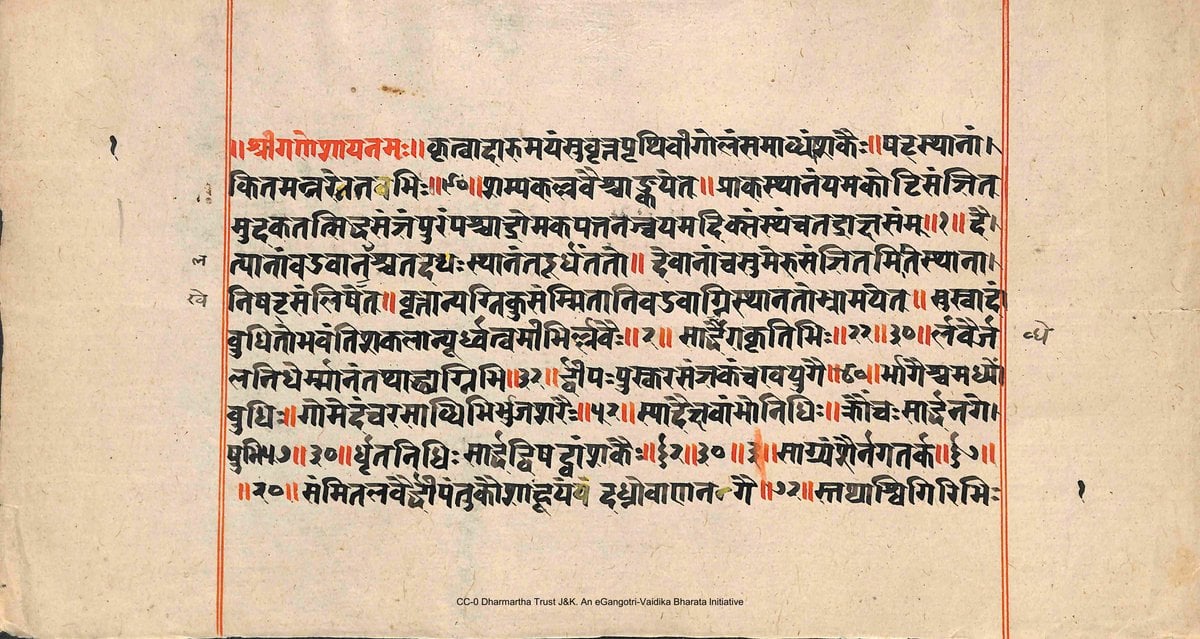 १
॥श्रीगणेशायनमः॥कृत्वादारुमयंसुवृत्तपृथिवीगोलंसमाव्धंशकैः॥षटृस्थानां।
कितमन्तरे तत भिः॥९०॥शम्यकल्ववैश्चाङ्कयेत्॥प्राकस्थानंयमकोटिसंज्ञित
मुदकतत्सिद्धसंज्ञंपुरंपश्चाद्रोमकपत्तनञ्चयमदिक्संस्थंचतद्राक्षसंम्॥१॥दै।
ल
त्यानांवऽवानृंश्चतदधःस्थानंतदूर्धंततो॥देवानांचसुमेरुसंज्ञितमितिस्थाना।
खे
निषटृसंलिषेत्॥वृत्तान्यग्निकुसंम्मितानिवऽवाग्निस्थानतोभ्रामयेत्॥सुस्वादं
वुधितोभवंतिशकलान्यूर्ध्वत्वमीभिर्ल्लवैः॥२॥सार्द्धैगकृतिभिः॥२२॥३०॥र्लवैर्ज
व्धे
लनिधेर्म्मानंतथाद्ध्यग्निभि॥३२॥र्द्द्वीपःपुस्करसंज्ञकंचावयुगै॥८०॥र्भागैश्चमध्यों
वुधिः॥गोमेदंचरमाव्धिभिर्भुजशरैः॥५२॥स्यादैक्षवांभोनिधिः॥क्रौंचःसार्द्धनगे।
षुभि५७॥३०॥र्धृतनिधिःसार्द्धद्विषट्वांशकैः॥६२॥३०॥साग्र्यंशैर्नगतर्क॥६७॥
॥२०॥संमितलवैर्द्द्वीपंतुकौशाह्वयं दध्नोवाणन गै॥७२॥स्तथाश्विगिरिभिः
१
CC-0 Dharmartha Trust J&K. An eGangotri-Vaidika Bharata Initiative